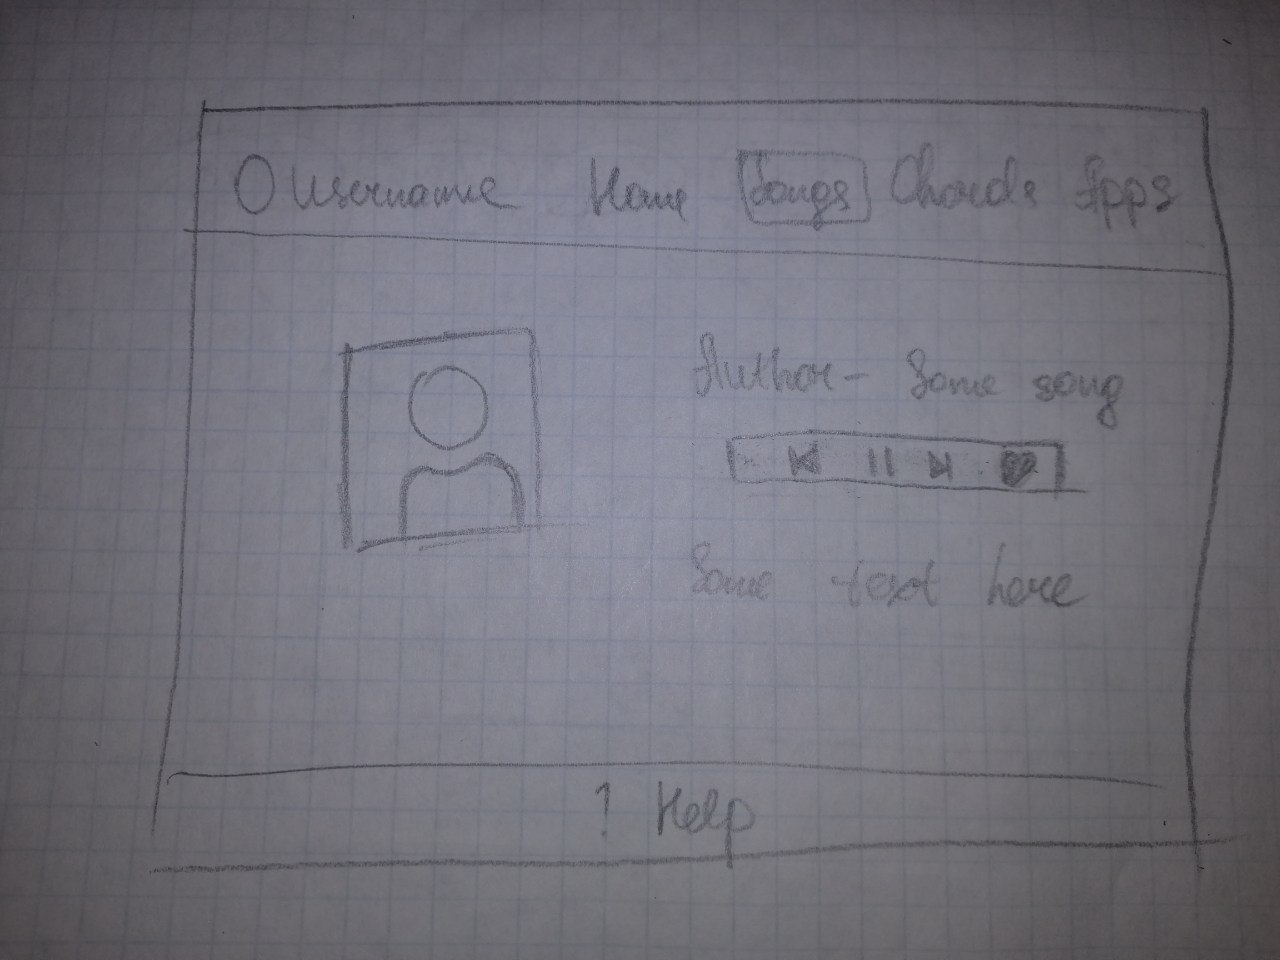 Username Home Songs Chords Apps
Author - Some song
Some text here
? Help